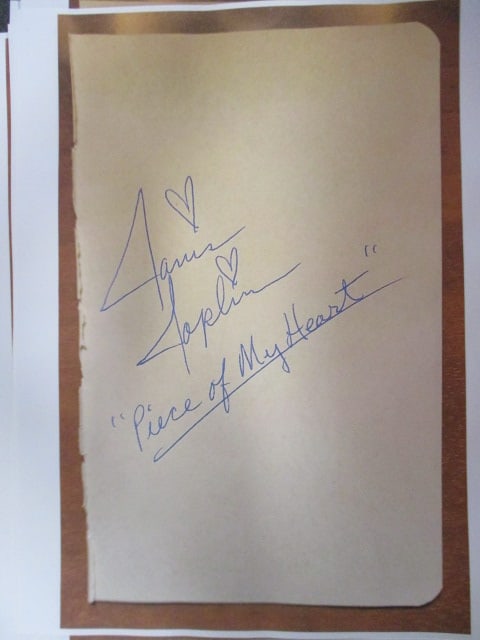 Janis
Joplin
"Piece of My Heart"